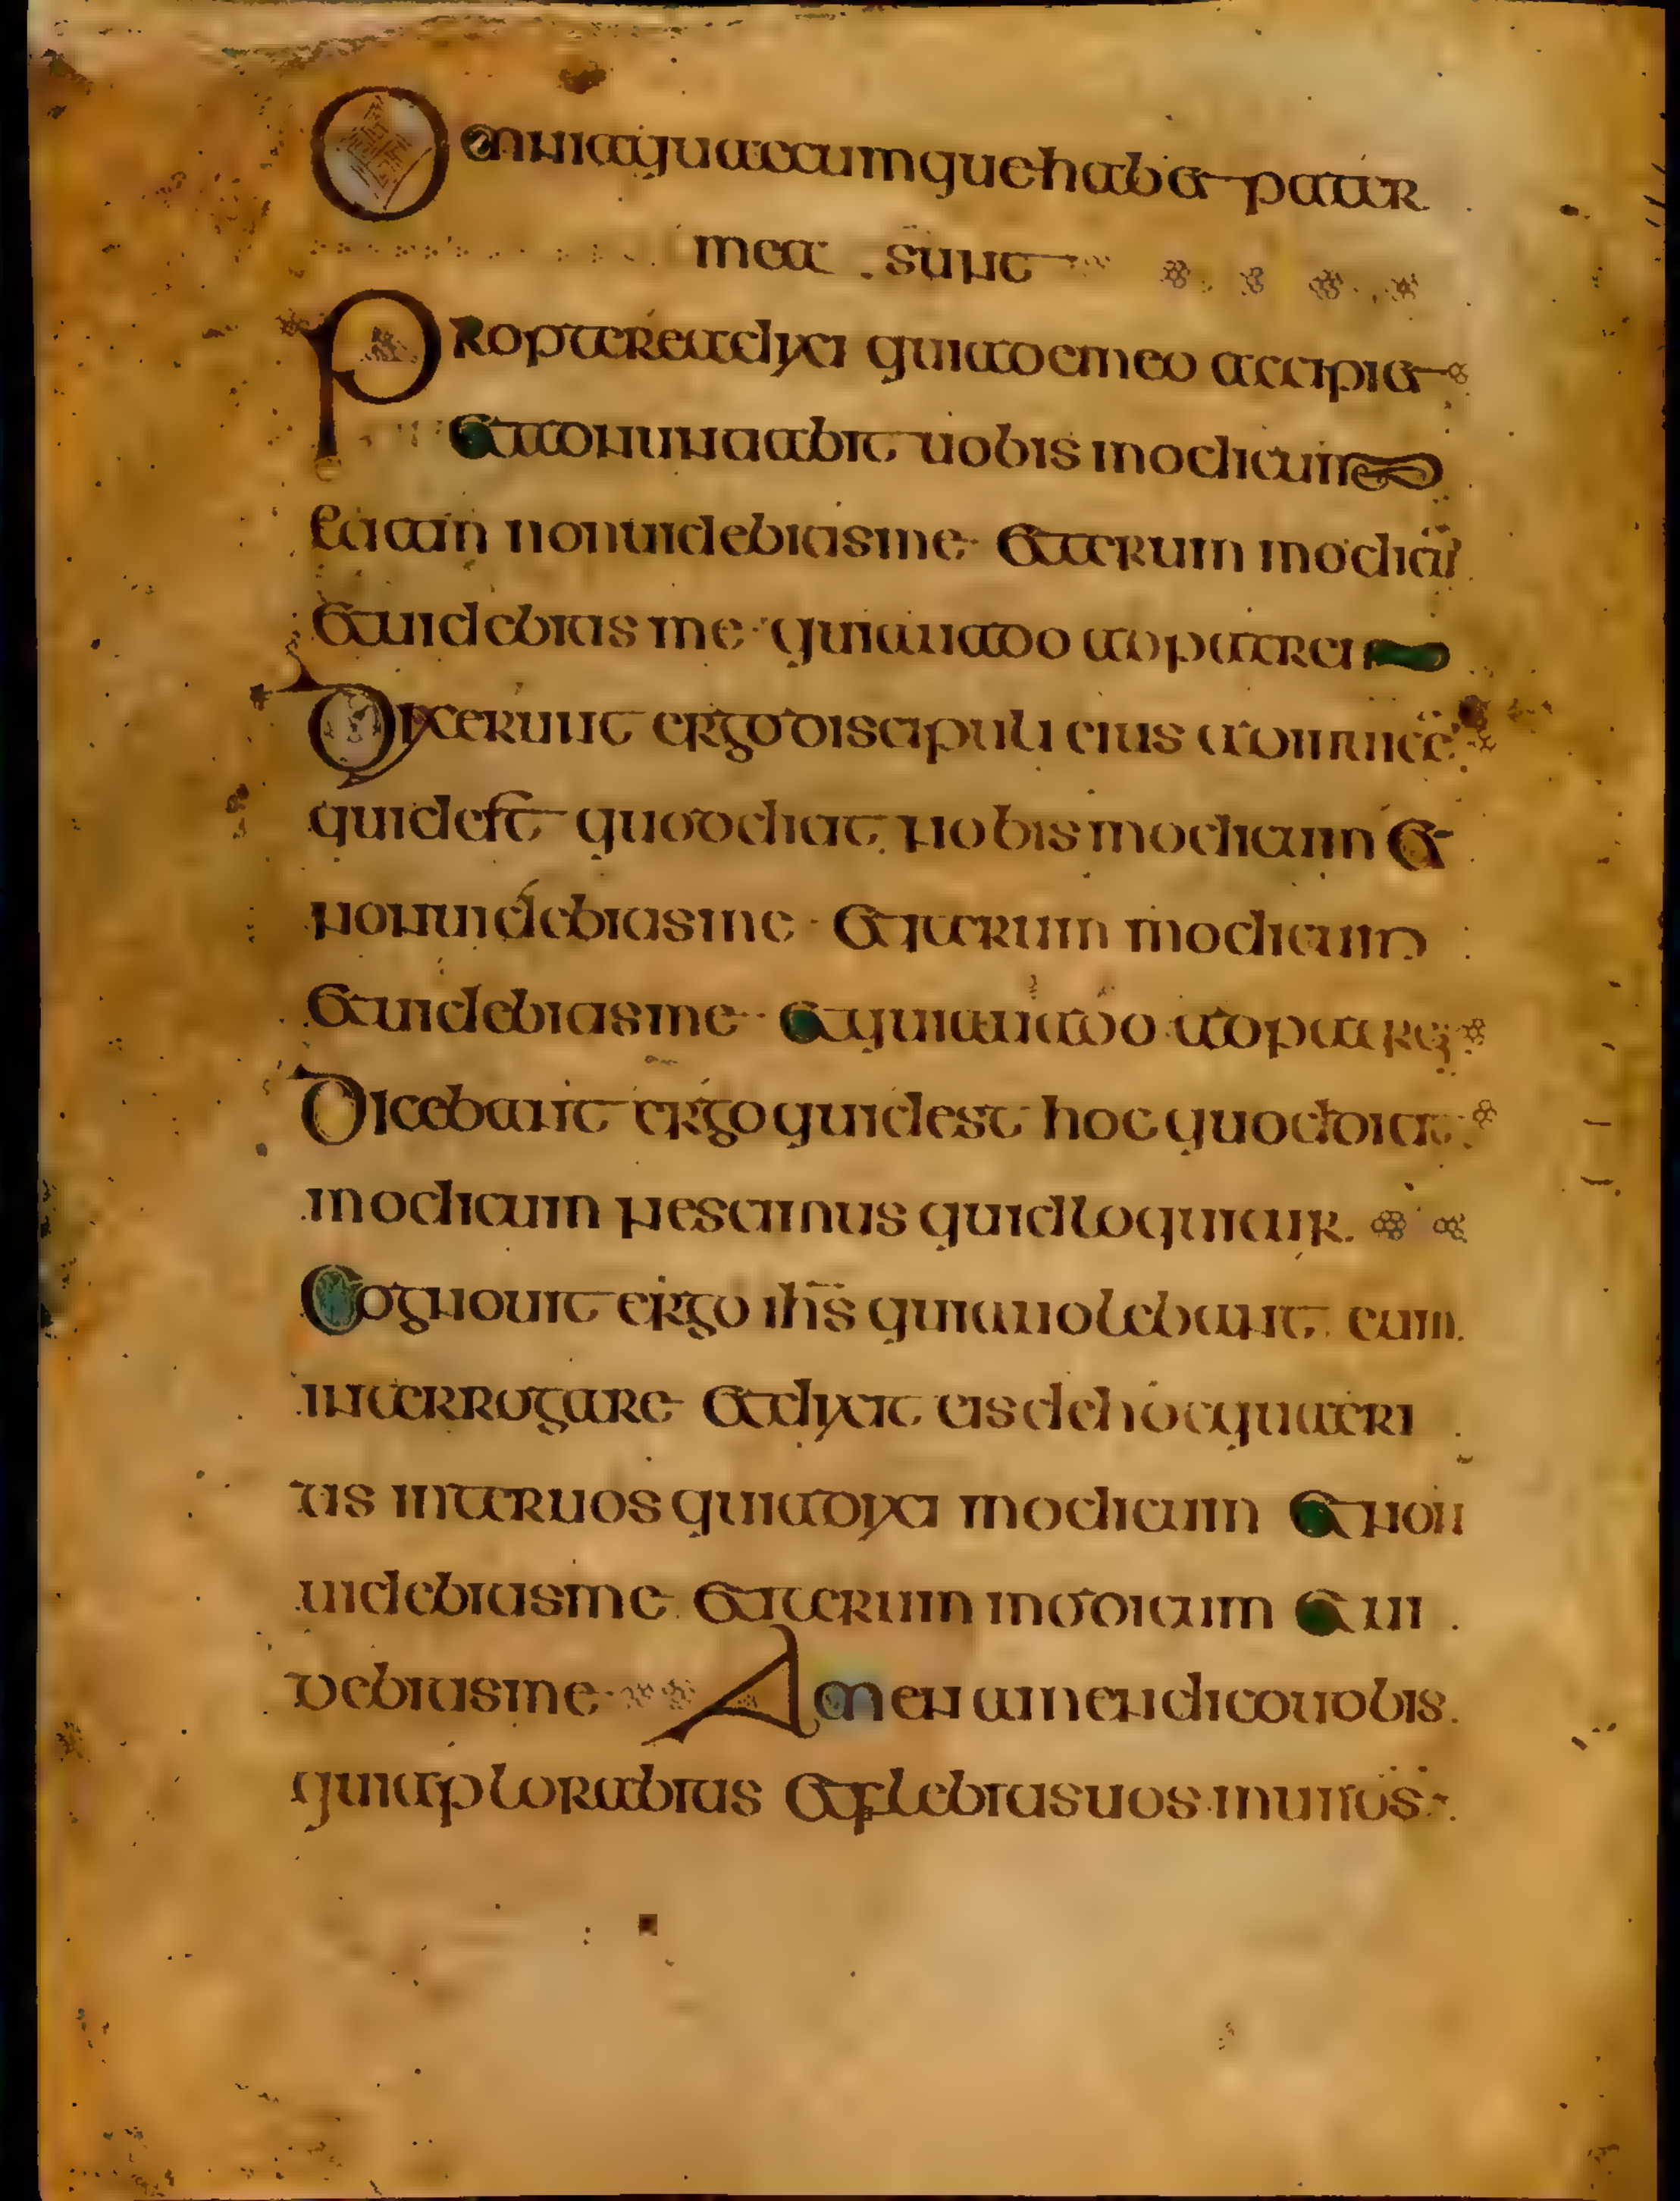 Omnia quaecumque habet pater
mea sunt
Propterea dixi quia de meo accipiet
et adnuntiabit uobis modicum
et iam non uidebitis me et iterum modicū
et uidebitis me quia uado ad patrem
Dixerunt ergo discipuli eius ad inuicē
quid est quod dicit nobis modicum et
non uidebitis me et iterum modicum
et uidebitis me et quia uado ad patrem
Dicebant ergo quid est hoc quod dicit
modicum nescimus quid loquitur
Cognouit ergo ihs quia uolebant eum
interrogare et dixit eis de hoc quaeri
tis inter uos quia dixi modicum et non
uidebitis me et iterum modicum et ui
debitis me Amen amen dico uobis
quia plorabitis et flebitis uos